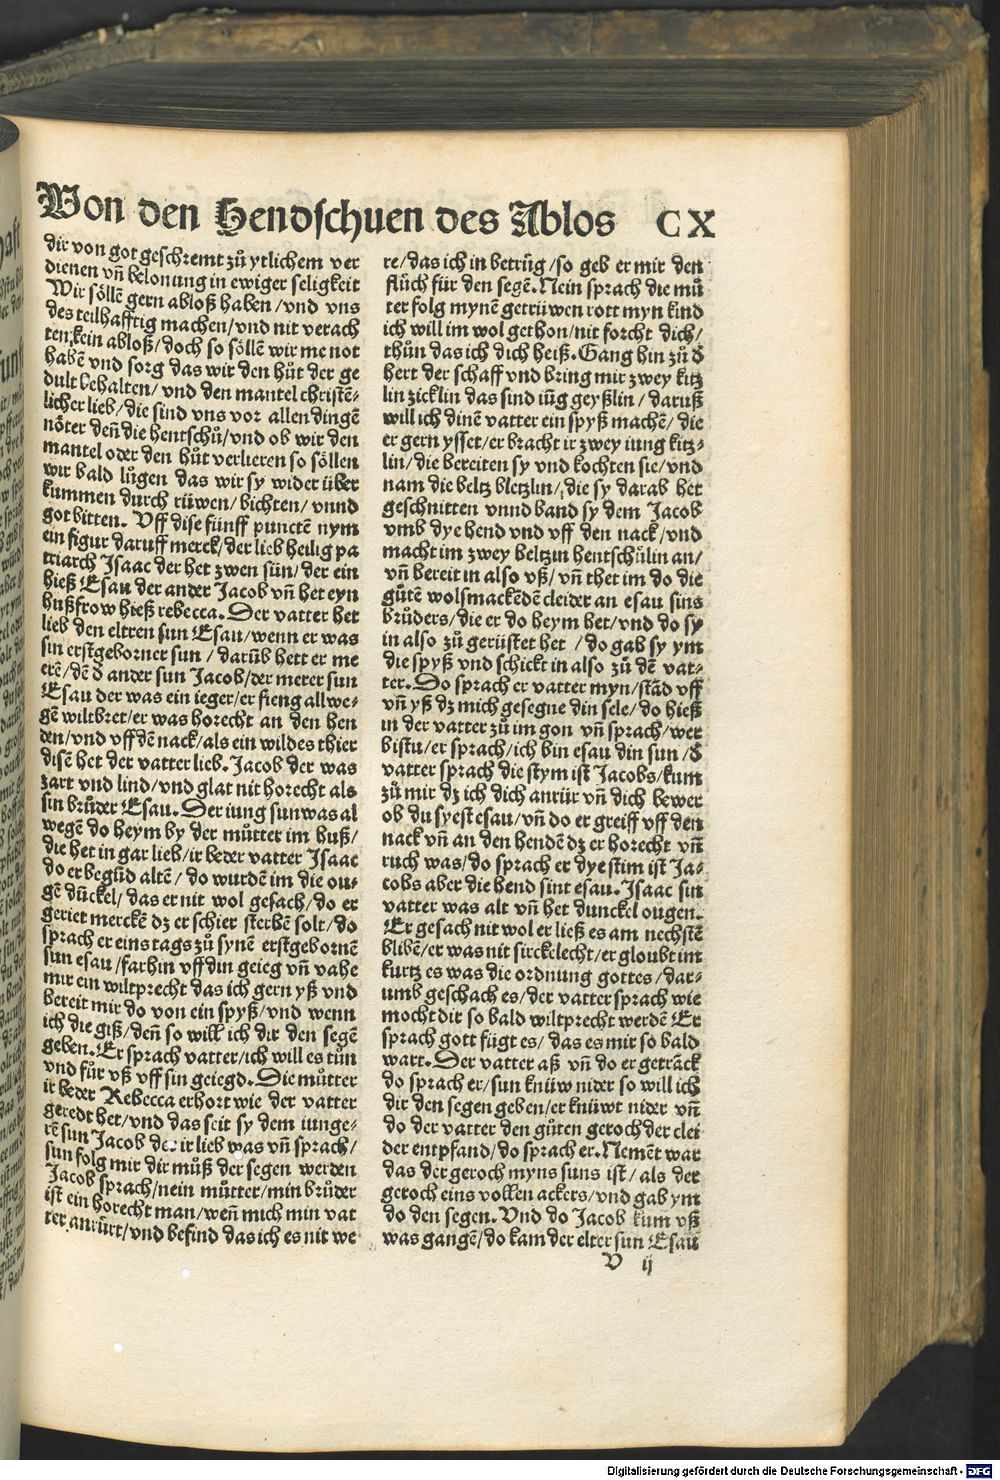 Von den Hendschuen des Ablos CX
dir von got geschremt zů ytlichem ver
dienen vñ belonung in ewiger seligkeit
Wir söllē gern abloß haben/vnd vns
des teilhafftig machen/vnd nit verach
ten kein abloß/doch so söllē wir me not
habē vnd sorg das wir den hůt der ge
dult behalten/vnd den mantel christē-
licher lieb/die sind vns vor allen dingē
nöter deñ die hentschů/vnd ob wir den
mantel oder den hůt verlieren so söllen
wir bald lůgen das wir sy wider über
kummen durch rüwen/bichten/vnnd
got bitten. Vff dise fünff punctē nym
ein figur daruff merck/der lieb heilig pa
triarch Isaac der het zwen sün/der ein
hieß Esau der ander Jacob vñ het eyn
hußfrow hieß rebecca. Der vatter het
lieb den eltren sun Esau/wenn er was
sin erstgeborner sun/darūb hett er me
erē/dē d ander sun Jacob/der merer sun
Esau der was ein ieger/er fieng allwe-
gē wiltbret/er was horecht an den hen
den/vnd vff dē nack/als ein wildes thier
disē het der vatter lieb. Jacob der was
zart vnd lind/vnd glat nit horecht als
sin brůder Esau. Der iung sun was al
wegē do heym by der můtter im huß/
die het in gar lieb/ir beder vatter Isaac
do er begūd altē/do wurdē im die ou-
gē dūckel/das er nit wol gesach/do er
geriet merckē dz er schier sterbē solt/do
sprach er eins tags zů synē erstgebornē
sun esau/far hin vff din geieg vñ vahe
mir ein wiltprecht das ich gern yß vnd
bereit mir do von ein spyß/vnd wenn
ich die giß/deñ so will ich dir den segē
geben. Er sprach vatter/ich will es tůn
vnd fůr vß vff sin geiegd. Die můtter
ir beder Rebecca erhort wie der vatter
geredt het/vnd das seit sy dem iunge-
rē sun Jacob der ir lieb was vñ sprach/
sun folg mir dir můß der segen werden
Jacob sprach/nein můtter/min brůder
ist ein horecht man/weñ mich min vat
ter anrürt/vnd befind das ich es nit we
re/das ich in betrüg/so geb er mir den
flůch für den segē. Nein sprach die mů
ter folg mynē getrüwen rott myn kind
ich will im wol gethon/nit forcht dich/
thůn das ich dich heiß. Gang hin zů d
hert der schaff vnd bring mir zwey kitz
lin zicklin das sind iūg geyßlin/daruß
will ich dinē vatter ein spyß machē/die
er gern ysset/er bracht ir zwey iung kitz-
lin/die bereiten sy vnd kochten sie/vnd
nam die beltz bletzlin/die sy darab het
geschnitten vnnd band sy dem Jacob
vmb dye hend vnd vff den nack/vnd
macht im zwey beltzin hentschülin an/
vñ bereit in also vß/vñ thet im do die
gůtē wolsmackēdē cleider an esau sins
brůders/die er do heym het/vnd do sy
in also zů gerüstet het/do gab sy ym
die spyß vnd schickt in also zů dē vat-
ter. Do sprach er vatter myn/stād vff
vñ yß dz mich gesegne din sele/do hieß
in der vatter zů im gon vñ sprach/wer
bistu/er sprach/ich bin esau din sun/d
vatter sprach die stym ist Jacobs/kum
zů mir dz ich dich anrür vñ dich bewer
ob du syest esau/vñ do er greiff vff den
nack vñ an den hendē dz er horecht vñ
ruch was/do sprach er dye stim ist Ja-
cobs aber die hend sint esau. Isaac sin
vatter was alt vñ het dunckel ougen.
Er gesach nit wol er ließ es am nechstē
blibē/er was nit sirckelecht/er gloubt im
kurtz es was die ordnung gottes/dar-
umb geschach es/der vatter sprach wie
mocht dir so bald wiltprecht werdē Er
sprach gott fügt es/das es mir so bald
wart. Der vatter aß vñ do er getrāck
do sprach er/sun knüw nider so will ich
dir den segen geben/er knüwt nider vñ
do der vatter den gůten geroch der clei
der entpfand/do sprach er. Nemēt war
das der geroch myns suns ist/als der
geroch eins vollen ackers/vnd gab ym
do den segen. Vnd do Jacob kum vß
was gangē/do kam der elter sun Esau
V ij
Digitalisierung gefördert durch die Deutsche Forschungsgemeinschaft - DFG